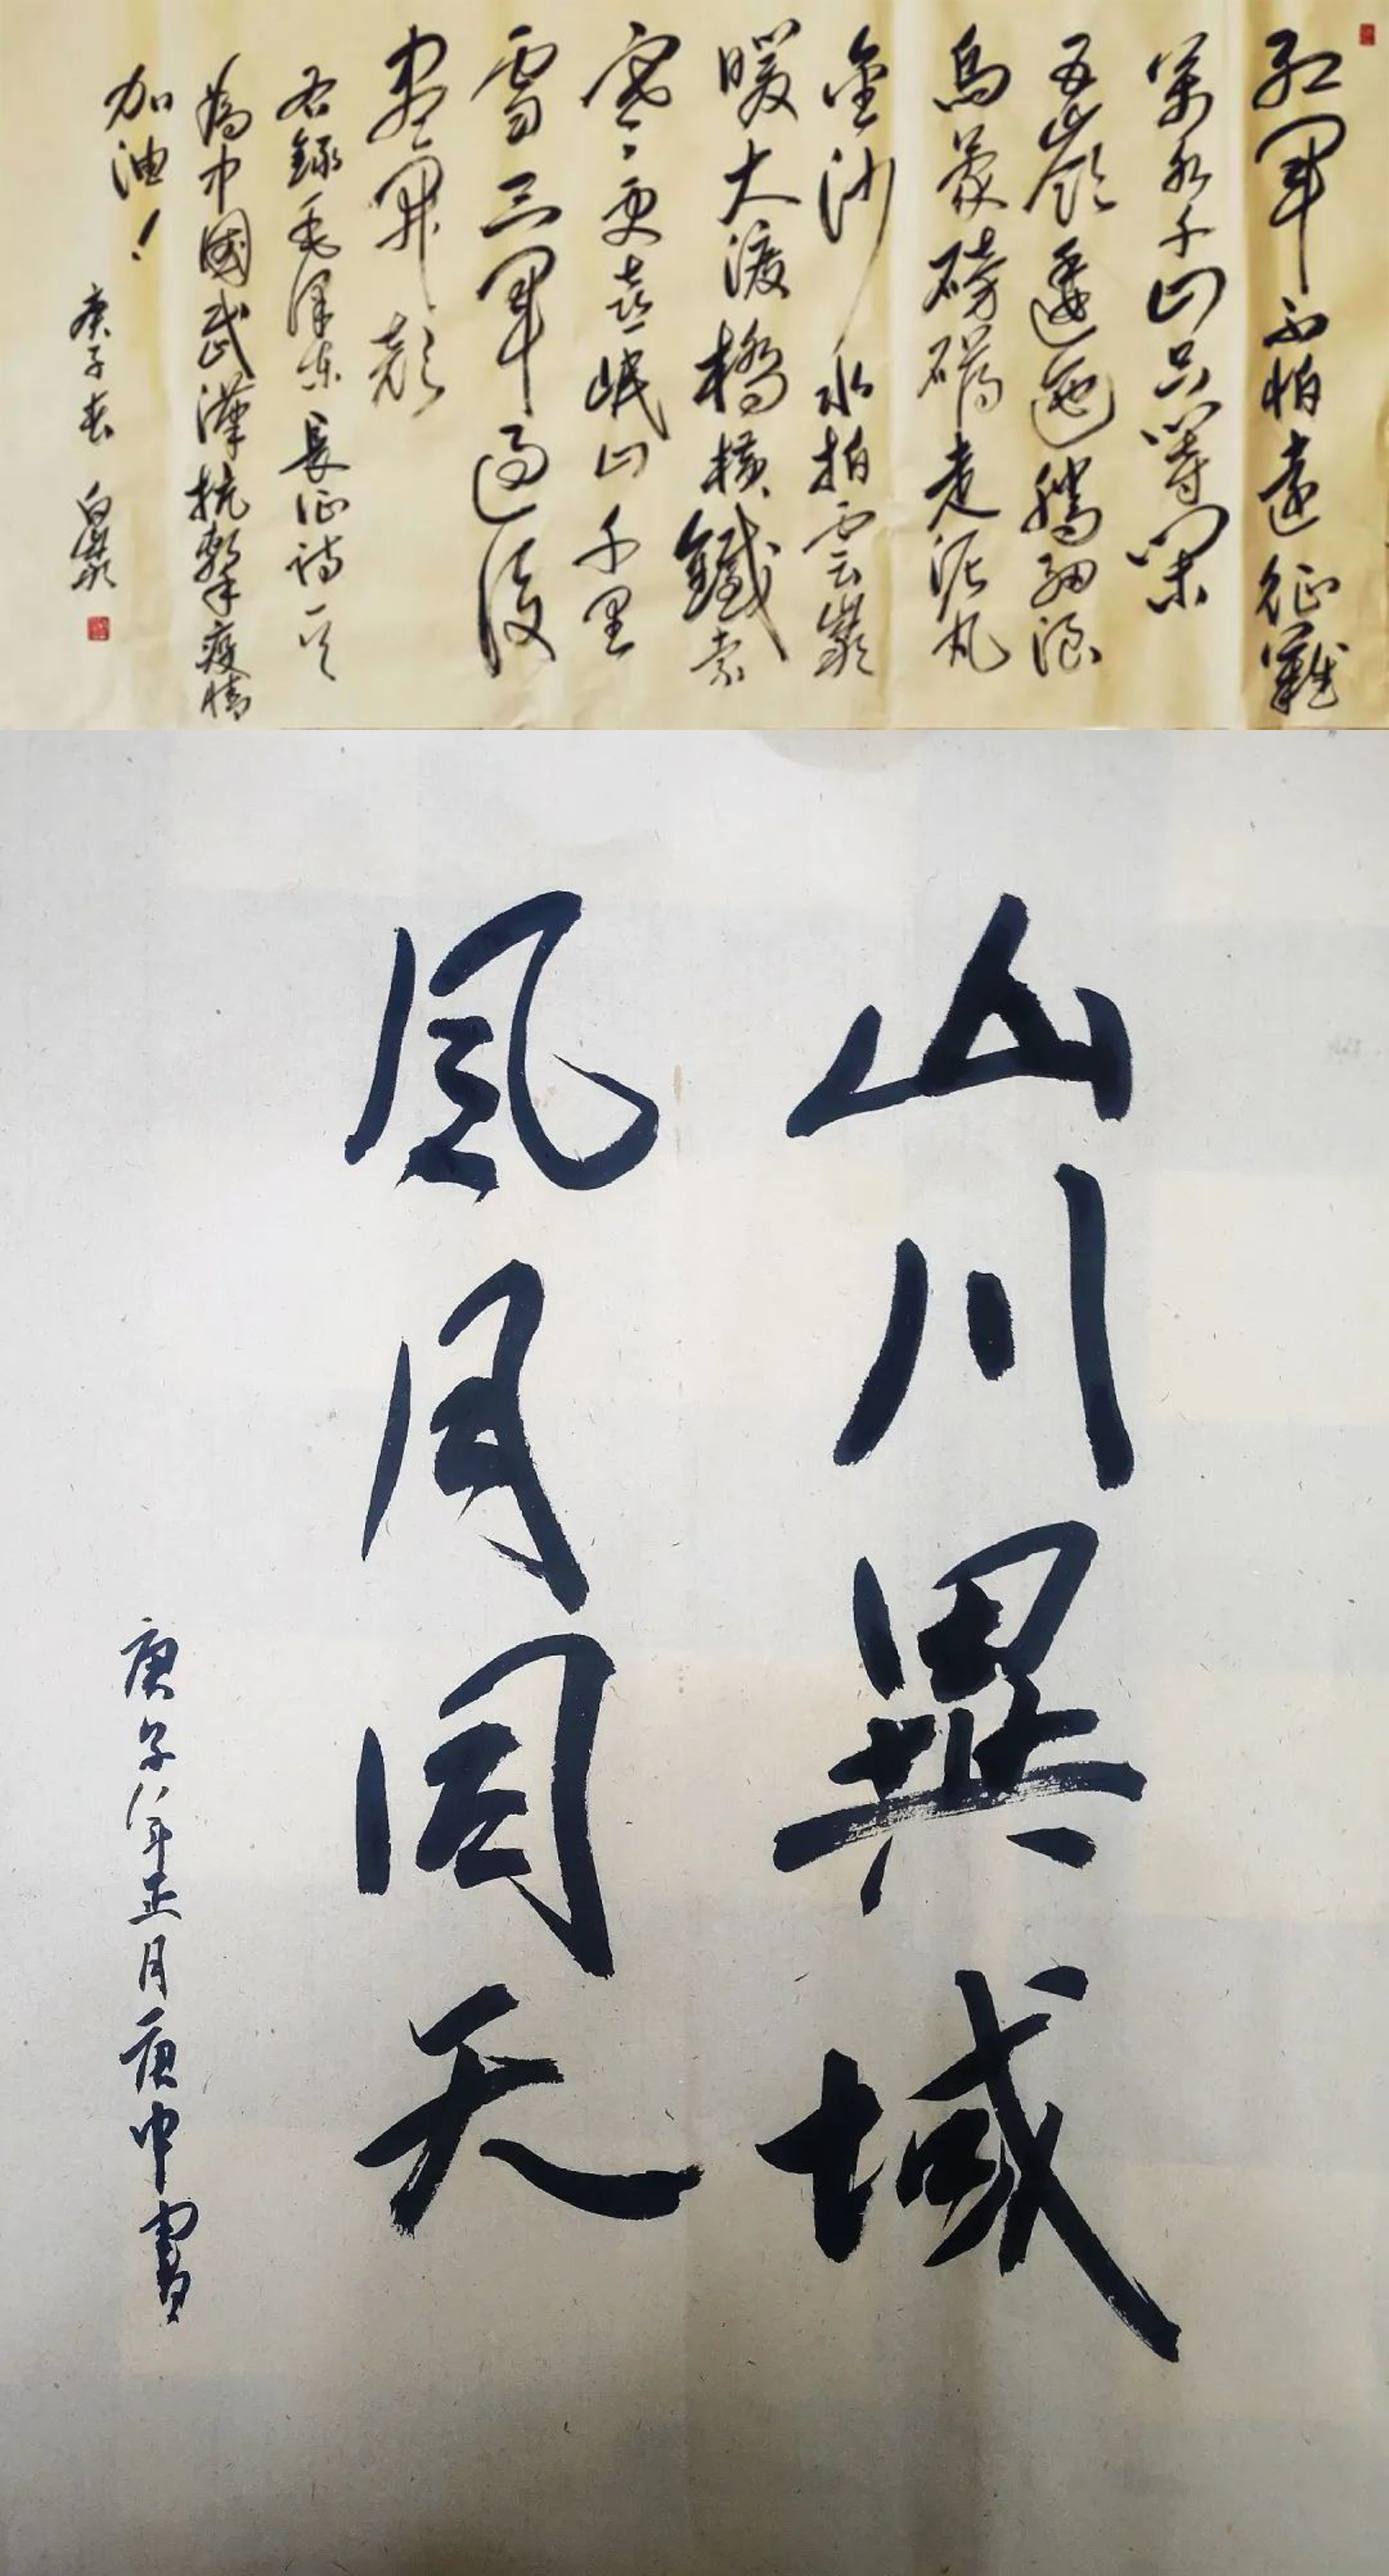 紅軍不怕遠征難
萬水千山只等閑
五嶺逶迤騰細浪
烏蒙磅礴走泥丸
金沙水拍雲崖
暖大渡橋橫鐵索
寒更喜岷山千里
雪三軍過後
盡開顏
右錄毛澤東長征詩一首
為中國武漢抗擊疫情
加油！
庚子春 白
山川異域
風月同天
庚子年正月庚申書